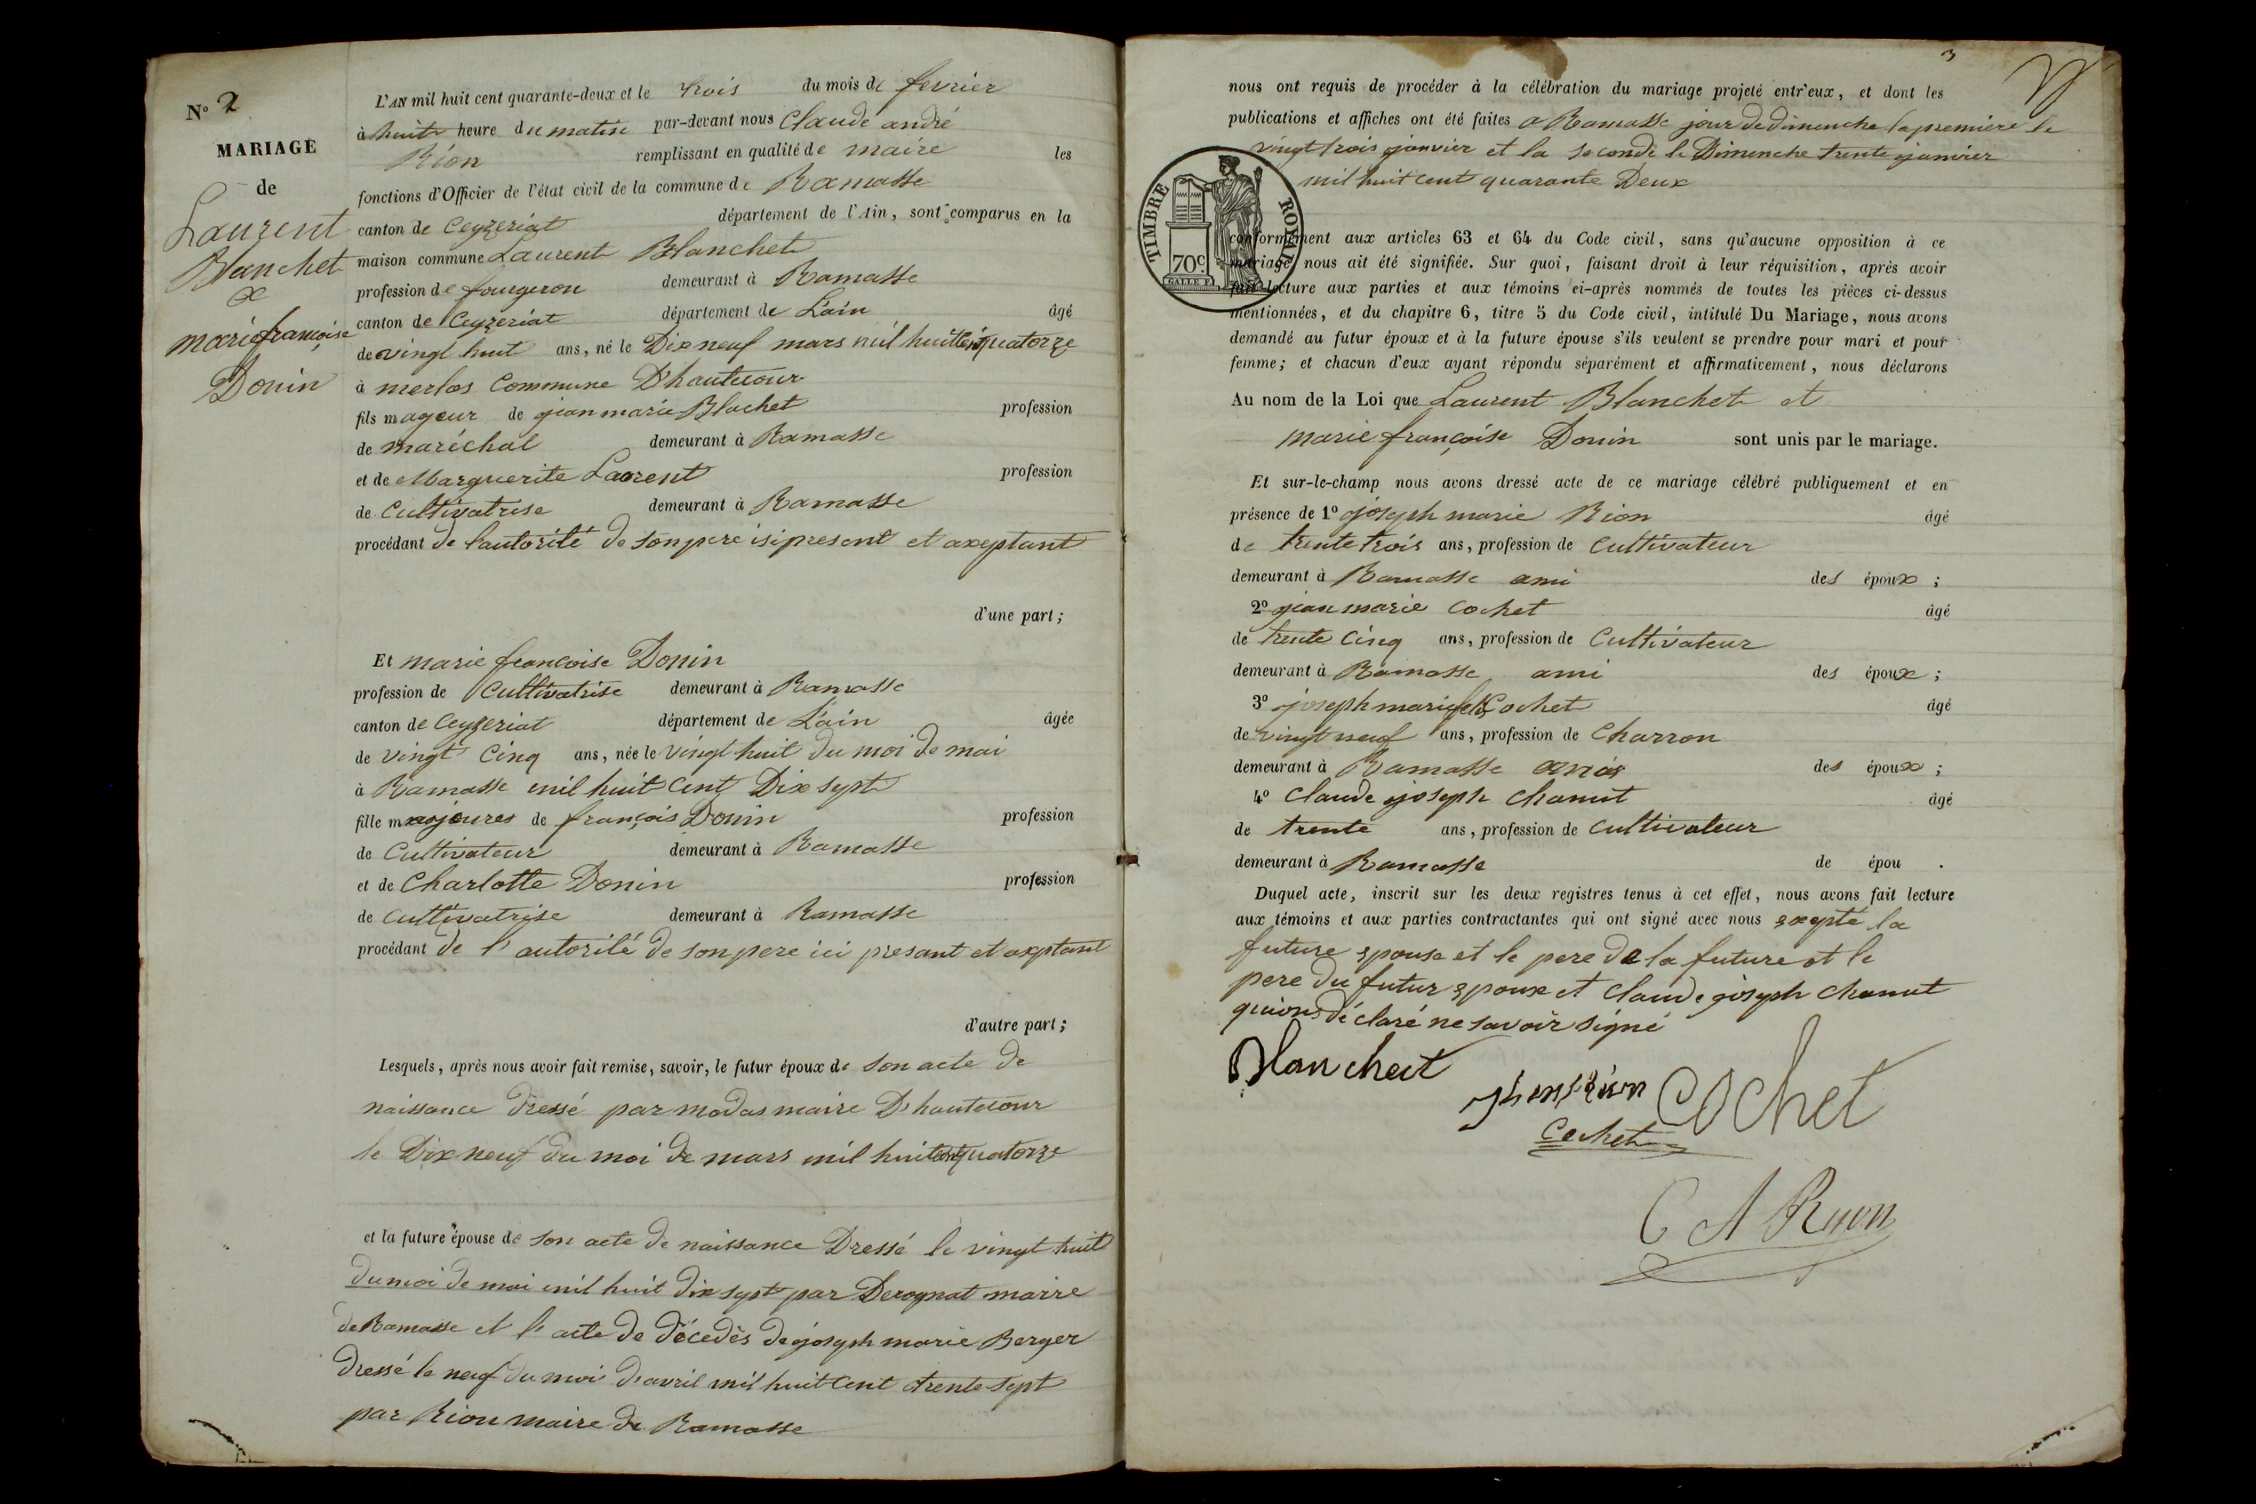 N° 2
MARIAGE
de
Laurent
Blanchet
&
marie françoise
Donin
L'AN mil huit cent quarante-deux et le trois du mois de fevrier
à huit heure du matin par-devant nous Claude andré
Rion remplissant en qualité de maire les
fonctions d'Officier de l'état civil de la commune de Ramasse
canton de Ceyzeriat département de l'Ain, sont comparus en la
maison commune Laurent Blanchet
profession de fougeron demeurant à Ramasse
canton de Ceyzeriat département de L'ain âgé
de vingt huit ans, né le Dix neuf mars mil huit cent quatorze
à merlos Commune D'hautecour
fils mageur de jean marie Blachet profession
de maréchal demeurant à Ramasse
et de Marguerite Laorent profession
de Cultivatrise demeurant à Ramasse
procédant de l'autorité de son pere isi present et axeptant
d'une part;
Et marie francoise Donin
profession de Cultivatrise demeurant à Ramasse
canton de Ceyzeriat département de L'ain âgée
de vingt Cinq ans, née le vingt huit du moi de mai
à Ramasse mil huit Cent Dix sept
fille majeures de françois Donin profession
de Cultivateur demeurant à Ramasse
et de Charlotte Donin profession
de Cultivatrise demeurant à Ramasse
procédant de l'autorité de son pere ici presant et axptant
d'autre part;
Lesquels, après nous avoir fait remise, savoir, le futur époux de son acte de
naissance dressé par modas maire D'hautecour
le Dix neuf du moi de mars mil huit cent quatorze
et la future épouse de son acte de naissance Dressé le vingt huit
du moi de mai mil huit dix sept par Derognat mairre
de Ramasse et l'acte de décedès de joseph marie Berger
dressé le neuf du moi d'avril mil huit Cent trente sept
par Rion maire de Ramasse
3
nous ont requis de procéder à la célébration du mariage projeté entr'eux, et dont les
publications et affiches ont été faites a Ramasse jour de dimenche la premiere le
vingt trois janvier et la seconde le Dimenche trente janvier
mil huit cent quarante Deux
TIMBRE ROYAL
70c
conformément aux articles 63 et 64 du Code civil, sans qu'aucune opposition à ce
mariage nous ait été signifiée. Sur quoi, faisant droit à leur réquisition, après avoir
fait lecture aux parties et aux témoins ci-après nommés de toutes les pièces ci-dessus
mentionnées, et du chapitre 6, titre 5 du Code civil, intitulé Du Mariage, nous avons
demandé au futur époux et à la future épouse s'ils veulent se prendre pour mari et pour
femme; et chacun d'eux ayant répondu séparément et affirmativement, nous déclarons
Au nom de la Loi que Laurent Blanchet et
marie françoise Donin sont unis par le mariage.
Et sur-le-champ nous avons dressé acte de ce mariage célébré publiquement et en
présence de 1° joseph marie Rion âgé
de trente trois ans, profession de Cultivateur
demeurant à Ramasse ami des époux;
2° jean marie Cochet âgé
de trente Cinq ans, profession de Cultivateur
demeurant à Ramasse ami des époux;
3° joseph marie Cochet âgé
de vingt neuf ans, profession de Charron
demeurant à Ramasse amis des époux;
4° Claude joseph Chanut âgé
de trente ans, profession de Cultivateur
demeurant à Ramasse de épou .
Duquel acte, inscrit sur les deux registres tenus à cet effet, nous avons fait lecture
aux témoins et aux parties contractantes qui ont signé avec nous exepté la
future epouse et le pere de la future et le
pere du futur epoux et Claude joseph Chanut
qui ons déclaré ne savoir signé
Blancheit
Rion Cochet
Cochet
C A Ryon